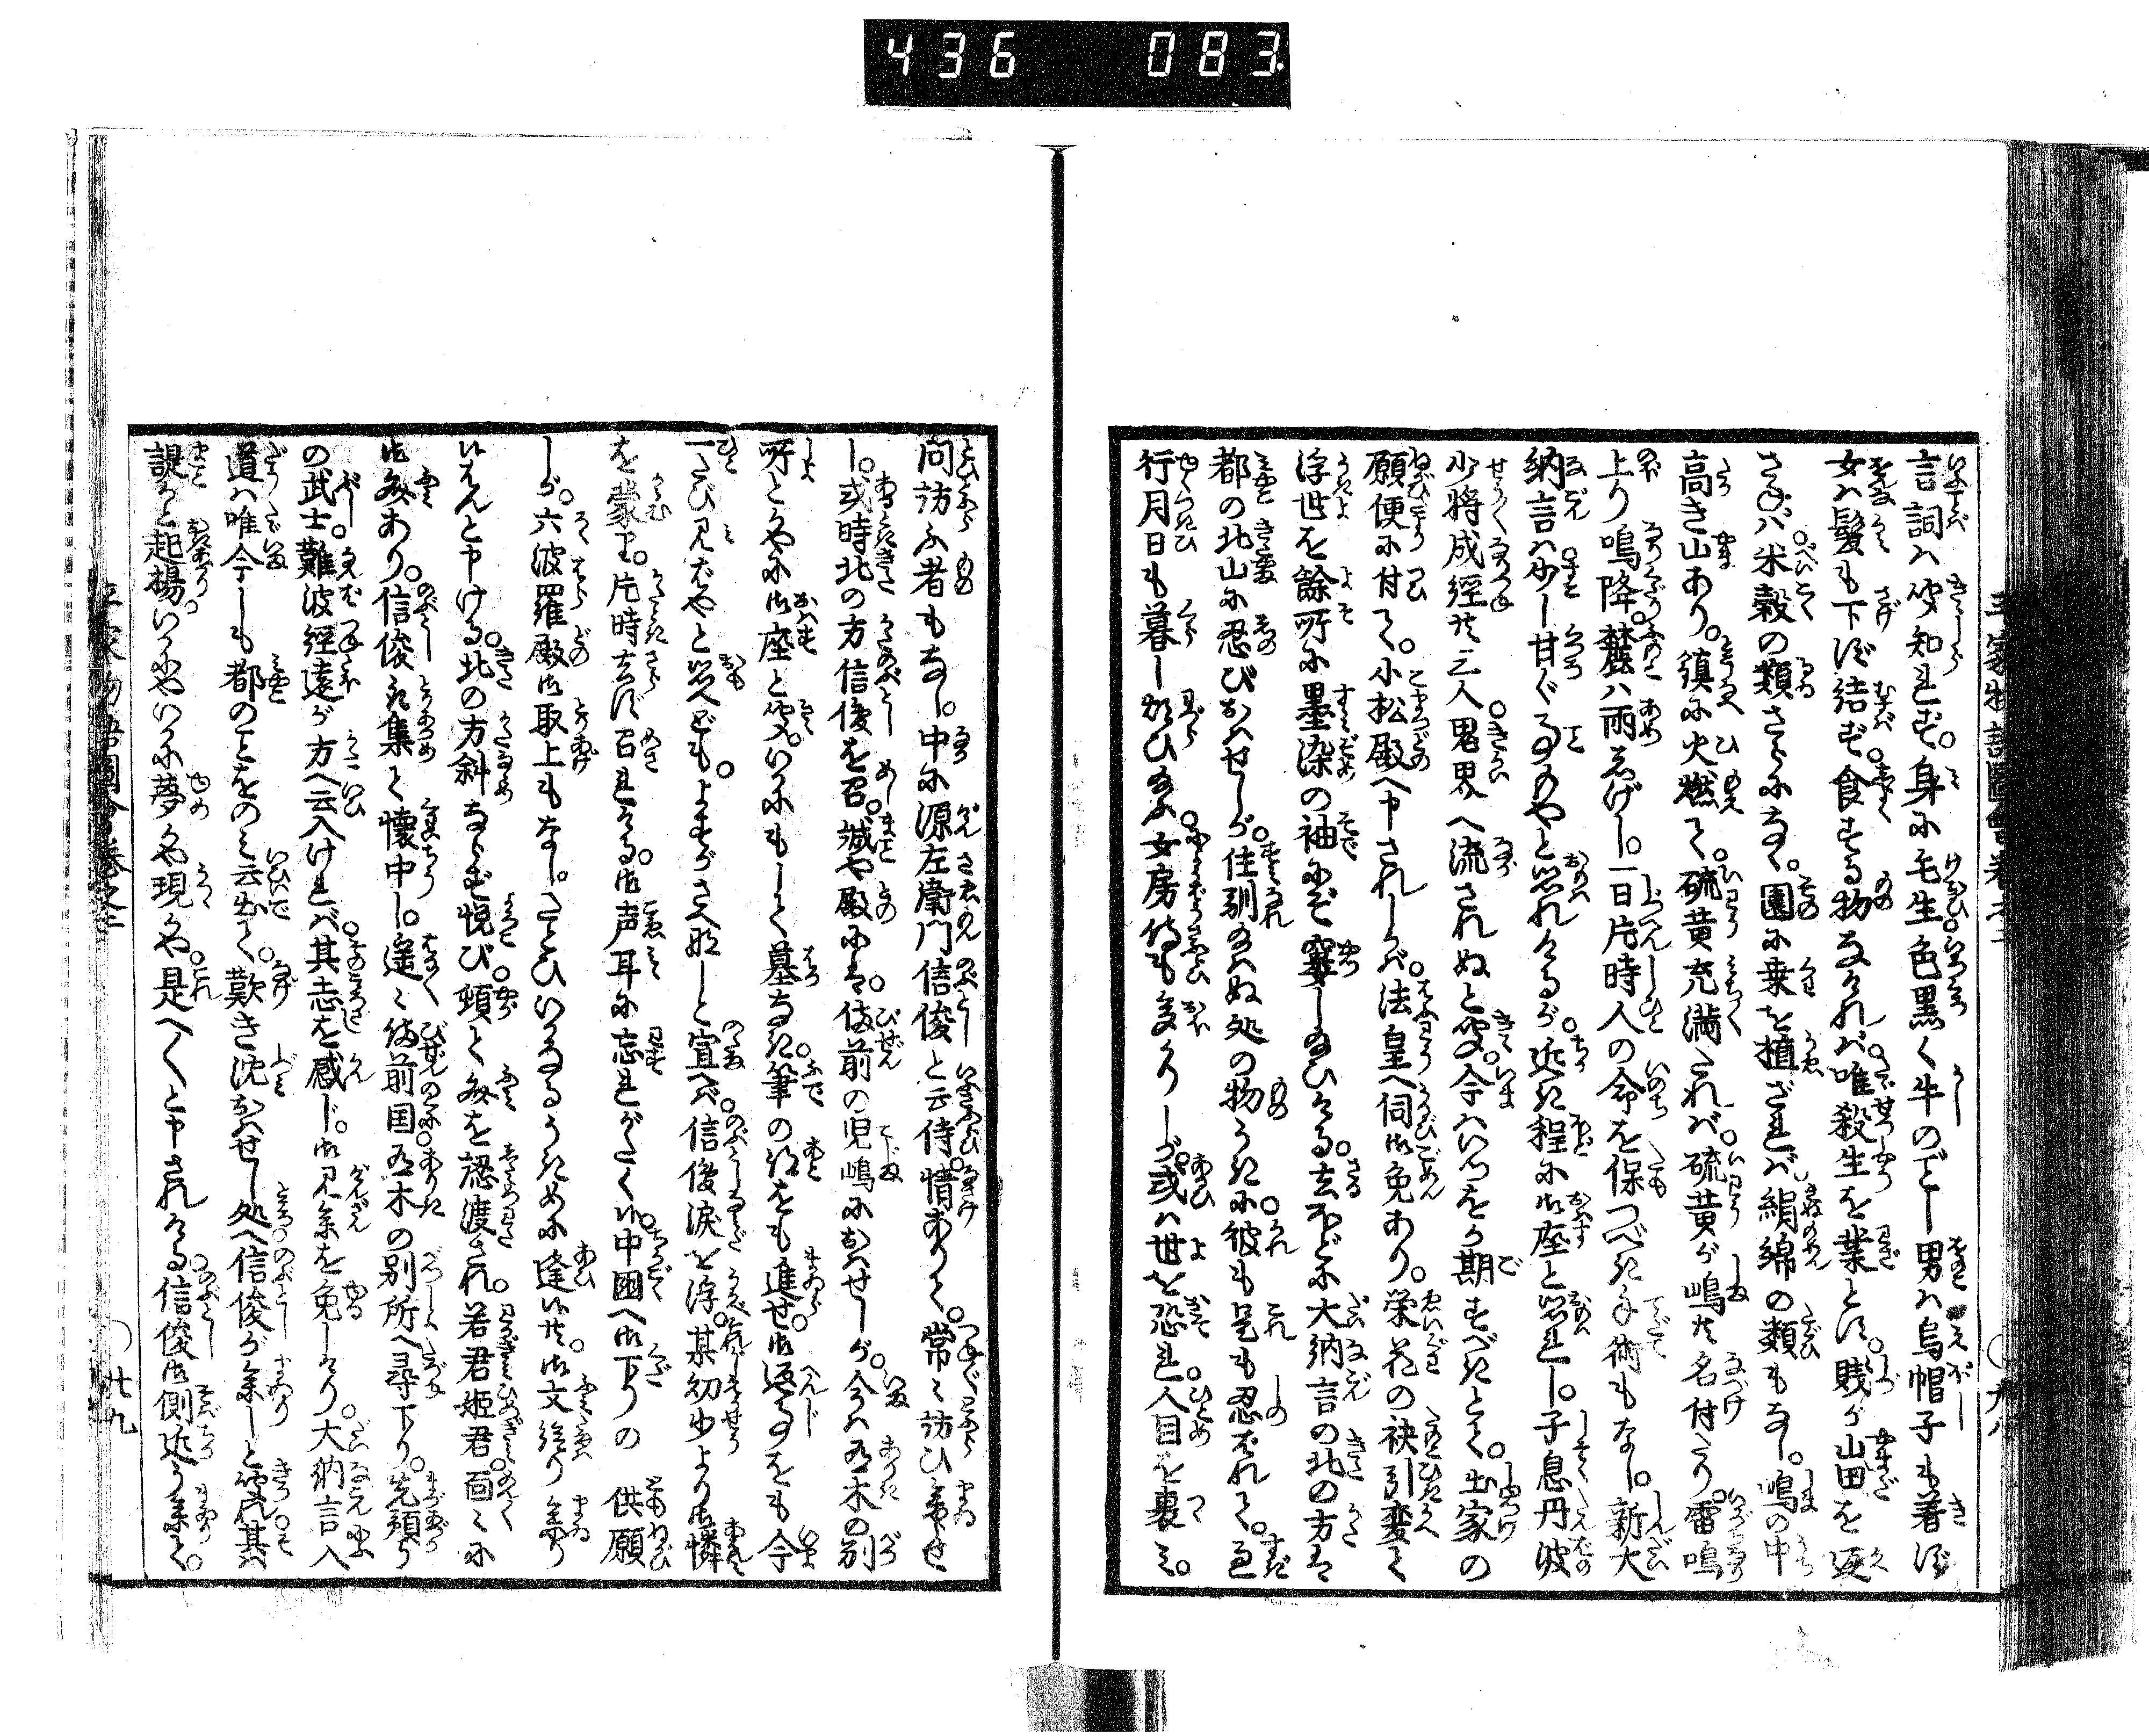 436 083
言詞ハ聞知れず。身に毛生色黒く牛のごとし男ハ烏帽子も着ず
女ハ髪も下ず結ず。食する物なけれバ唯殺生を業とす。賤が山田を返
さねバ。米穀の類さらになく。園に桑を植ざれバ絹綿の類もなし。嶋の中
高き山あり。鎮に火燃て。硫黄充満たれバ。硫黄が嶋共名付たり雷鳴
上り鳴降。麓ハ雨しげし。一日片時人の命を保つべき手術もなし。新大
納言ハ少し甘ぐる事やと思れけるが。近き程に御座と思れし。子息丹波
少将成経共三人鬼界へ流されぬと聞。今ハいつをか期すべきとて。出家の
願便に付て。小松殿へ申されしかバ。法皇へ伺御免あり。栄花の袂引変て
浮世を餘所に墨染の袖にぞ窶し給ひける。去ほどに大納言の北の方ハ
都の北山に忍びおハせしが。住馴給ハぬ処の物うきに。彼も是も忍ばれて。過
行月日も暮し煩ひ給ふ。女房侍も多かりしが。或ハ世を恐れ。人目を裹ミ。
問訪ふ者もなし。中に源左衛門信俊と云侍。情ありて。常に訪ひ参らせ
し。或時北の方信俊を召。誠や殿にハ。備前の児嶋におハせしが。今ハ有木の別
所とかやに御座と聞。いかにもして墓なき筆の跡をも進せ。御返事をも今
一たび見ばやと思へども。よすがさへ非しと宣へバ。信俊涙を浮。某幼少より御憐
を蒙り。片時去ず召れける。御声耳に忘れがたく候。中国へ御下りの供願
しが。六波羅殿御取上もなし。たとひいかなるうきめに逢候共。御文給り参り
候はんと申ける。北の方斜ならず悦び。頓て文を認渡され。若君姫君。面々に
御文あり。信俊取集て懐中し。遥々備前国有木の別所へ尋下り。先預り
の武士。難波経遠が方へ云入けれバ。其志を感じ。御見参を免しけり。大納言入
道ハ唯今しも都のことをのミ云出て。歎き沈おハせし処へ信俊が参しと聞へ。其ハ
誠かと起揚。いかにやいかに夢かや現かや。是へ〱と申されける。信俊御側近う参りて。
平家物語圖會巻之二
廿九